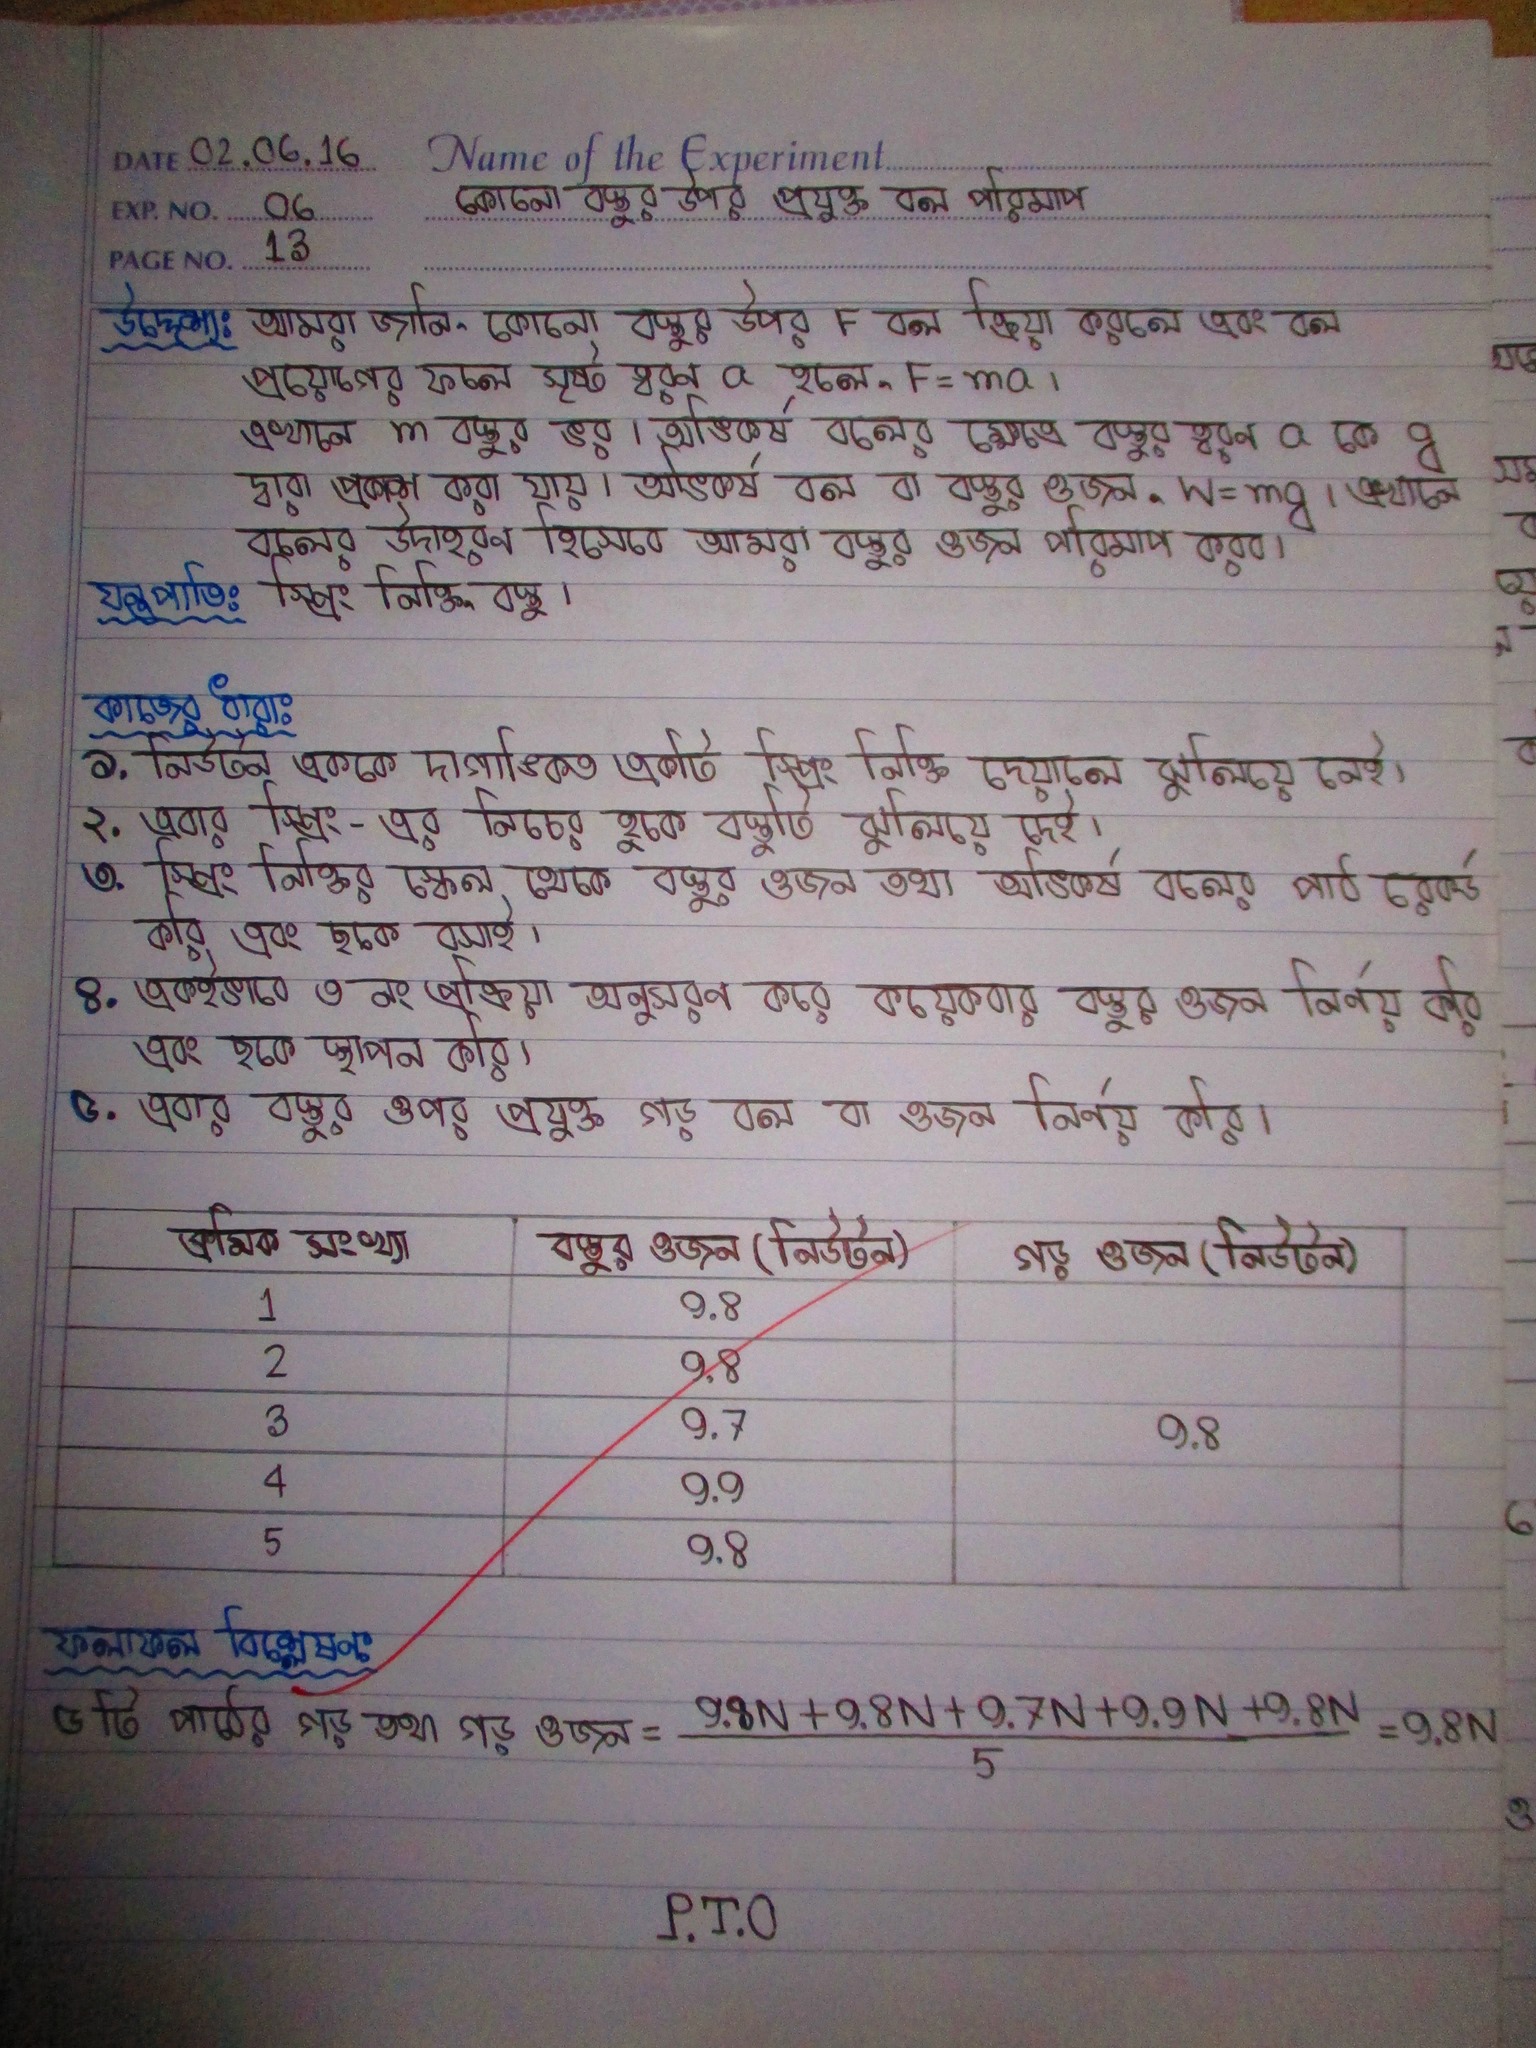 DATE 02.06.16 Name of the Experiment
EXP. NO. 06 কোনো বস্তুর উপর প্রযুক্ত বল পরিমাপ
PAGE NO. 13
উদ্দেশ্যঃ আমরা জানি, কোনো বস্তুর উপর F বল ক্রিয়া করলে এবং বল
প্রয়োগের ফলে সৃষ্ট ত্বরণ a হলে, F = ma।
এখানে m বস্তুর ভর। অভিকর্ষ বলের ক্ষেত্রে বস্তুর ত্বরণ a কে g
দ্বারা প্রকাশ করা যায়। অভিকর্ষ বল বা বস্তুর ওজন, W = mg। এখানে
বলের উদাহরন হিসেবে আমরা বস্তুর ওজন পরিমাপ করব।
যন্ত্রপাতিঃ স্প্রিং নিক্তি, বস্তু।
কাজের ধারাঃ
১. নিউটন এককে দাগাঙ্কিত একটি স্প্রিং নিক্তি দেয়ালে ঝুলিয়ে নেই।
২. এবার স্প্রিং-এর নিচের হুকে বস্তুটি ঝুলিয়ে দেই।
৩. স্প্রিং নিক্তির স্কেল থেকে বস্তুর ওজন তথা অভিকর্ষ বলের পাঠ রেকর্ড
করি এবং ছকে বসাই।
৪. একইভাবে ৩ নং প্রক্রিয়া অনুসরন করে কয়েকবার বস্তুর ওজন নির্ণয় করি
এবং ছকে স্থাপন করি।
৫. এবার বস্তুর ওপর প্রযুক্ত গড় বল বা ওজন নির্ণয় করি।
ক্রমিক সংখ্যা বস্তুর ওজন (নিউটন) গড় ওজন (নিউটন)
1 9.8
2 9.8
3 9.7 9.8
4 9.9
5 9.8
ফলাফল বিশ্লেষনঃ
৫ টি পাঠের গড় তথা গড় ওজন = (9.8N + 9.8N + 9.7N + 9.9N + 9.8N) / 5 = 9.8N
P.T.O